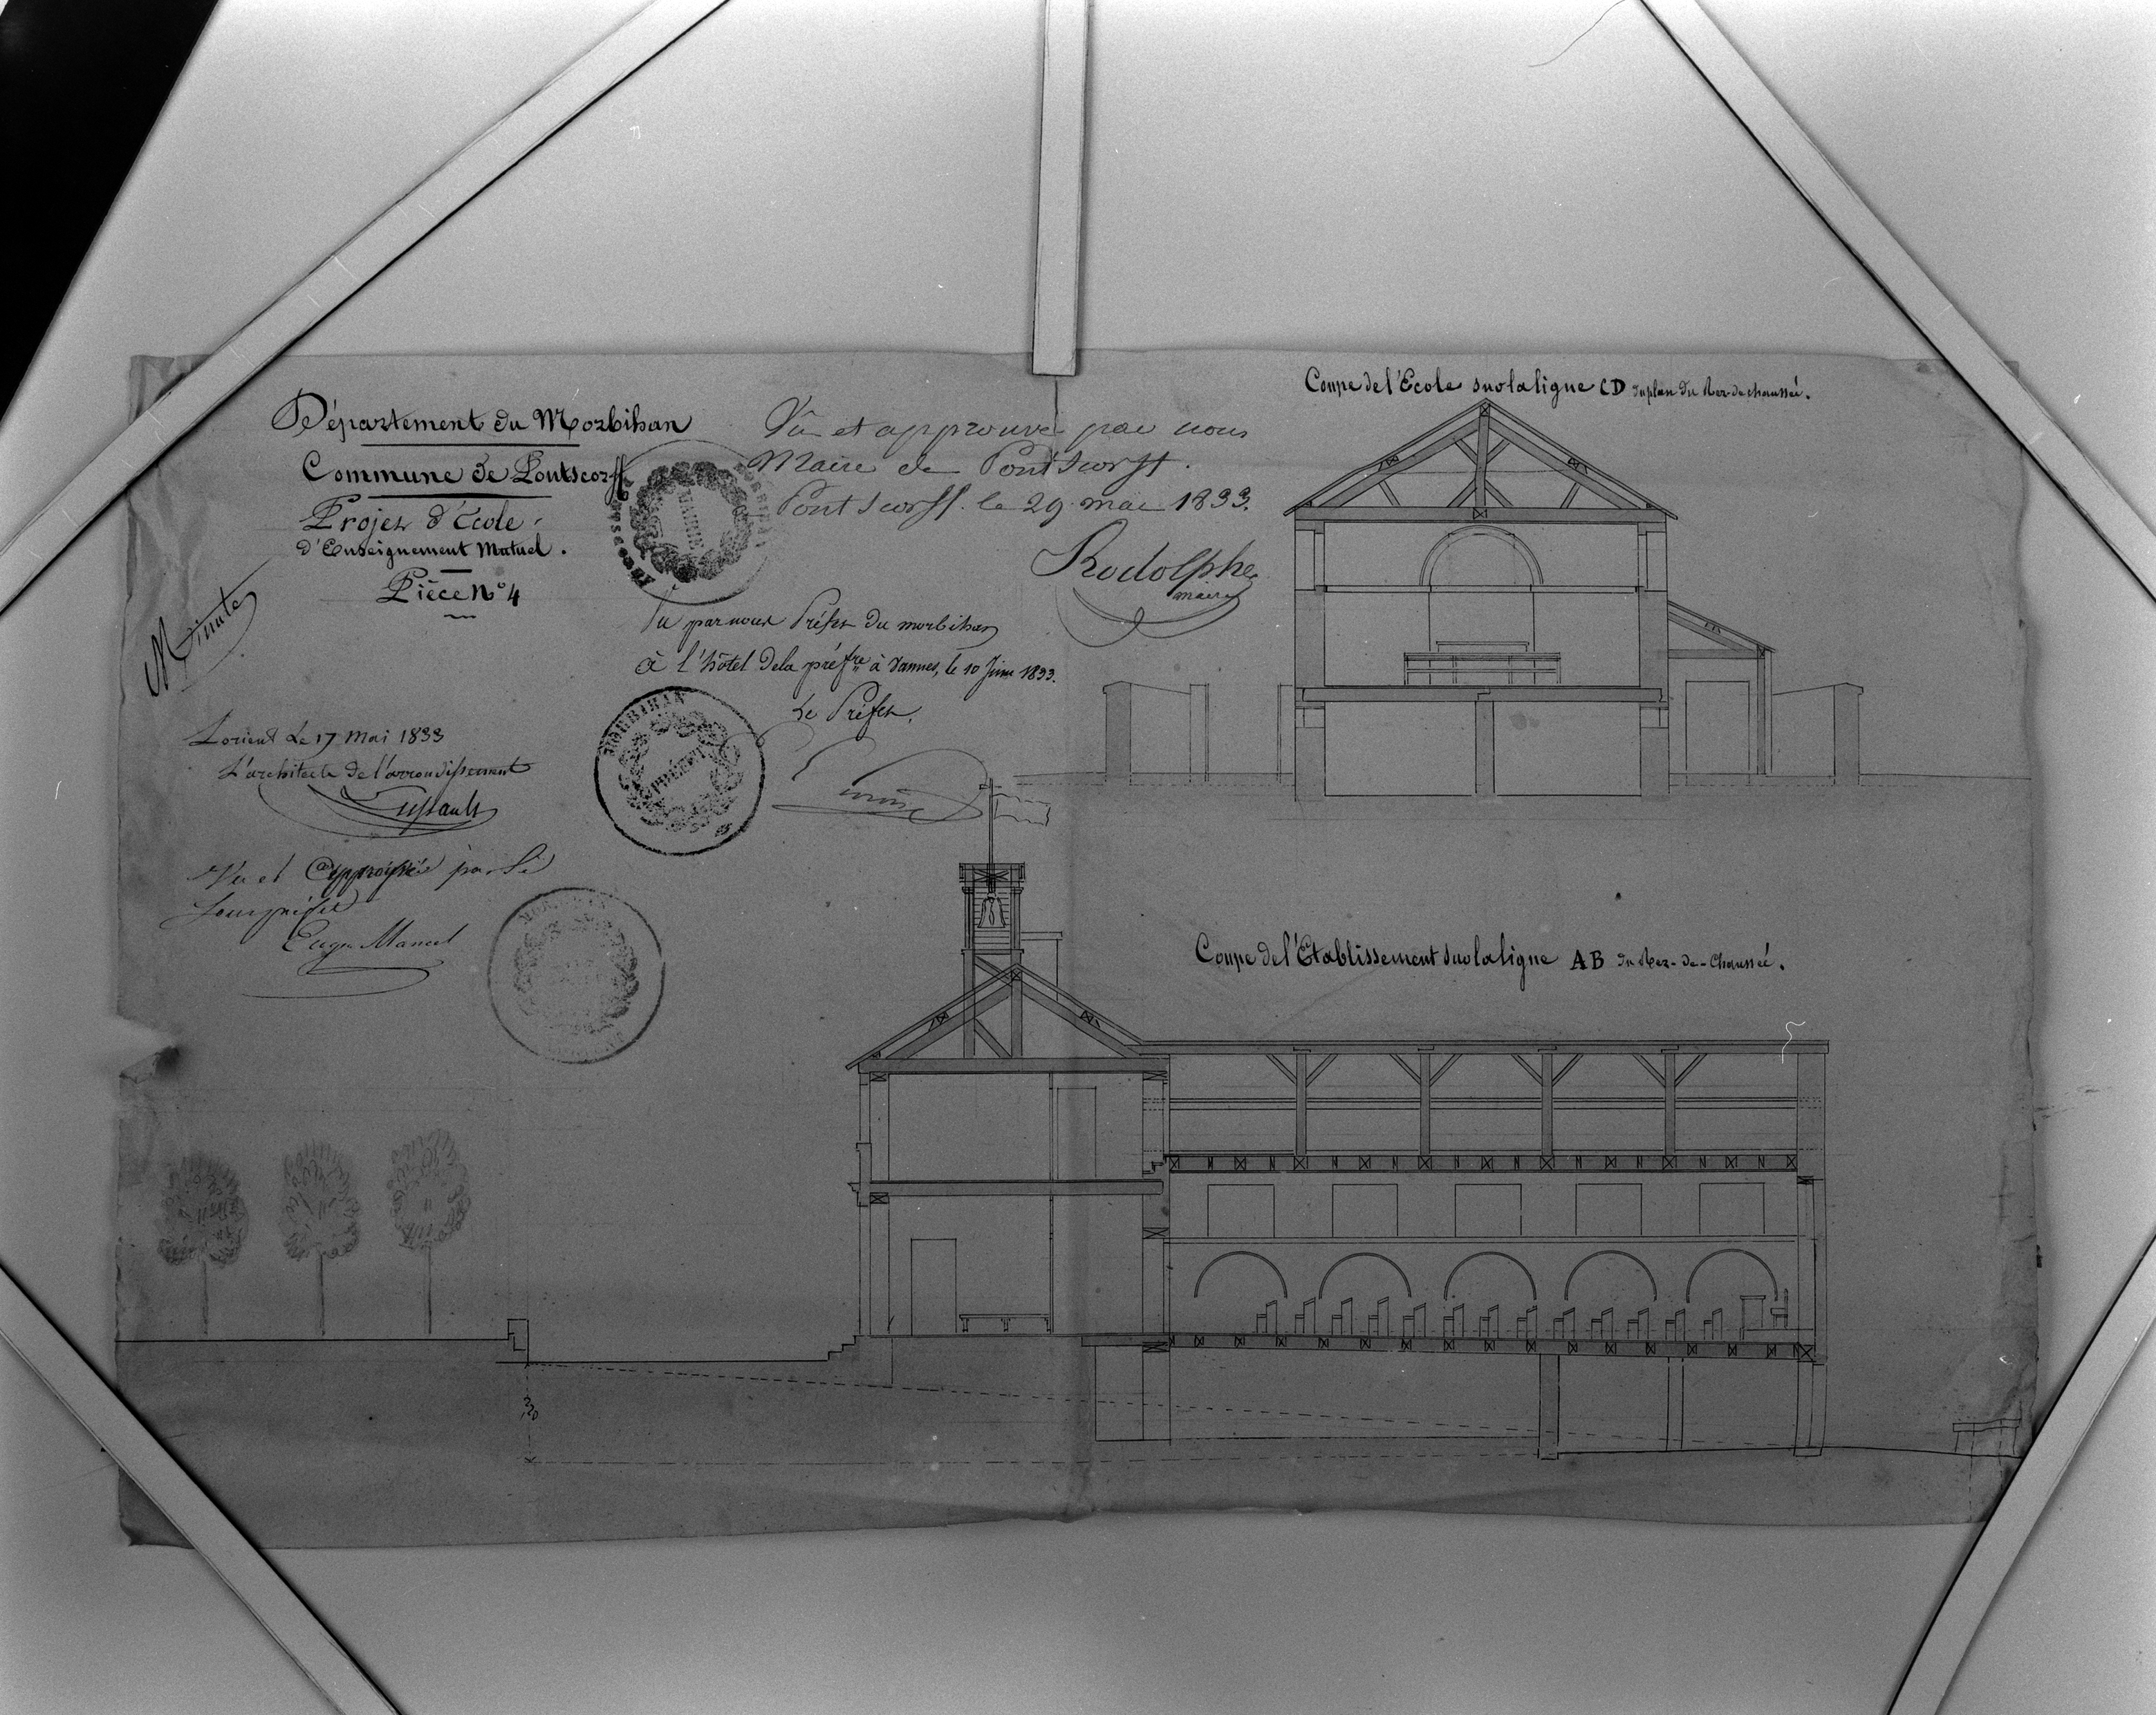 Département du Morbihan
Commune de Pontscorff
Projet d'École
d'Enseignement Mutuel.
Pièce No 4
Minute
Lorient Le 17 Mai 1833
L'architecte de l'arrondissement
Lussault
Vu et Approuvé par le
Souspréfet
Eugne Mancel
Vû et approuvé par nous
Maire de Pontscorff.
Pontscorff. le 29 mai 1833.
Rodolphe
maire
MAIRIE
Vu par nous Préfet du morbihan
à l'hôtel de la préfre à Vannes, le 10 Juin 1833.
Le Préfet,
MORBIHAN
Coupe de l'École sur la ligne CD du plan du Rez-de-chaussée.
Coupe de l'Établissement sur la ligne AB du Rez-de-Chaussée.